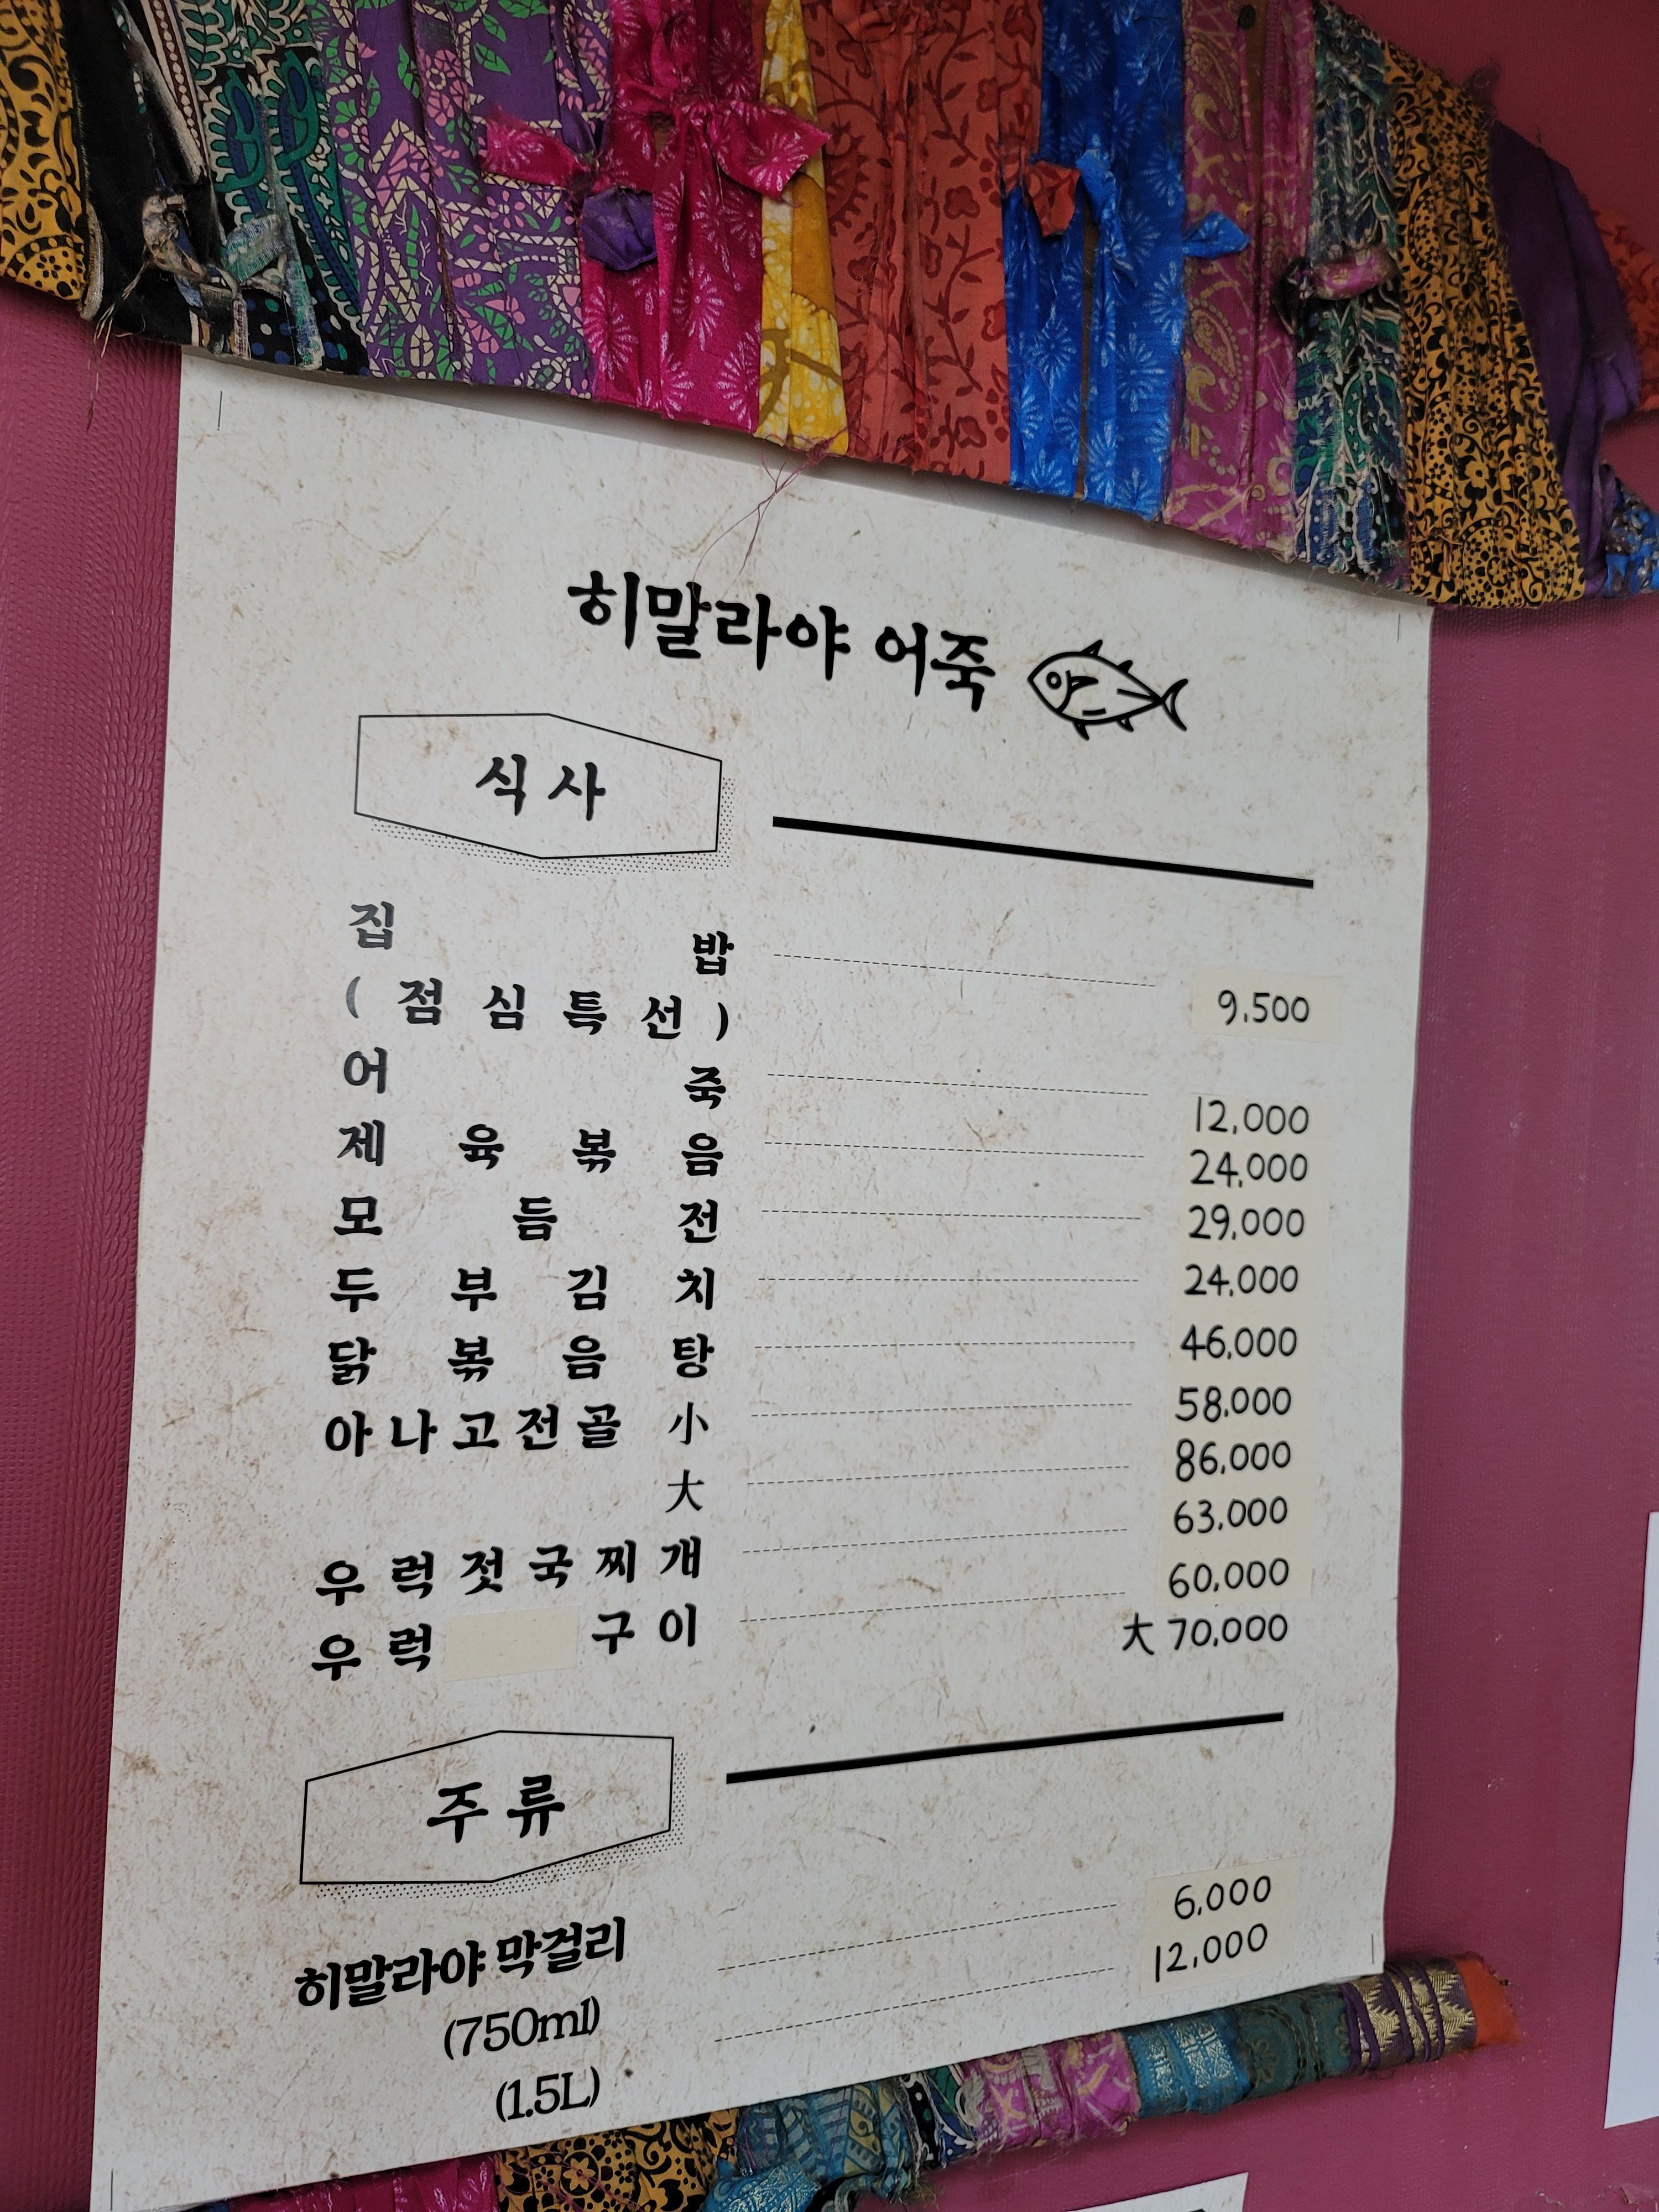 히말라야 어죽
식사
집밥 9,500
(점심특선)
어죽 12,000
제육볶음 24,000
모듬전 29,000
두부김치 24,000
닭볶음탕 46,000
아나고전골 小 58,000
大 86,000
우럭젓국찌개 63,000
우럭 구이 60,000
大 70,000
주류
히말라야 막걸리
(750ml) 6,000
(1.5L) 12,000